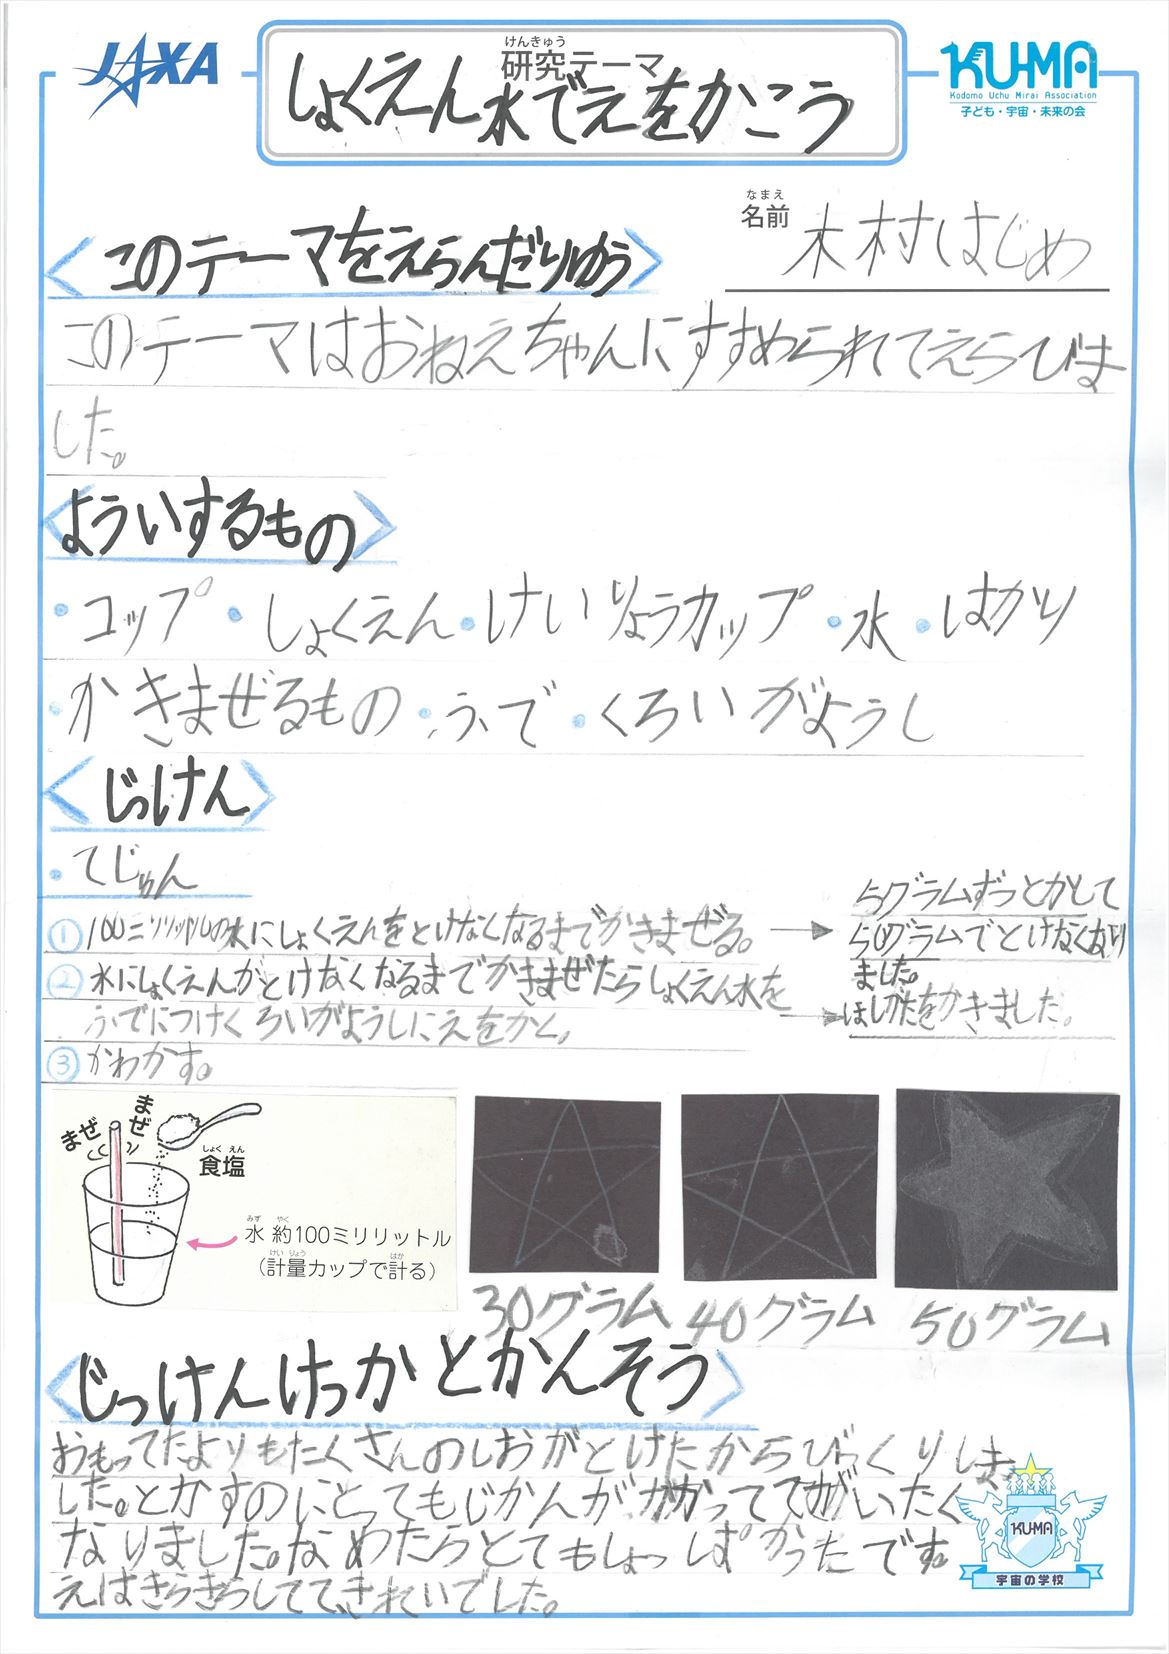 JAXA
けんきゅう
研究テーマ
しょくえん水でえをかこう
KU-MA
Kodomo Uchu Mirai Association
子ども・宇宙・未来の会
なまえ
名前
木村はじめ
〈このテーマをえらんだりゆう〉
このテーマはおねえちゃんにすすめられてえらびま
した。
〈よういするもの〉
・コップ・しょくえん・けいりょうカップ・水・はかり
・かきまぜるもの・ふで・くろいがようし
〈じっけん〉
・てじゅん
①100ミリリットルの水にしょくえんをとけなくなるまでかきまぜる。
→5グラムずつとかして
50グラムでとけなくなり
ました。
②水にしょくえんがとけなくなるまでかきまぜたらしょくえん水を
ふでにつけくろいがようしにえをかく。
→ほしがたをかきました。
③かわかす。
まぜ
まぜ
しょくえん
食塩
みず やく
水 約100ミリリットル
けいりょう はか
(計量カップで計る)
30グラム
40グラム
50グラム
〈じっけんけっかとかんそう〉
おもってたよりもたくさんのしおがとけたからびっくりしま
した。とかすのにとってもじかんがかかっててがいたく
なりました。なめたらとてもしょっぱかったです。
えはきらきらしててきれいでした。
KU-MA
宇宙の学校